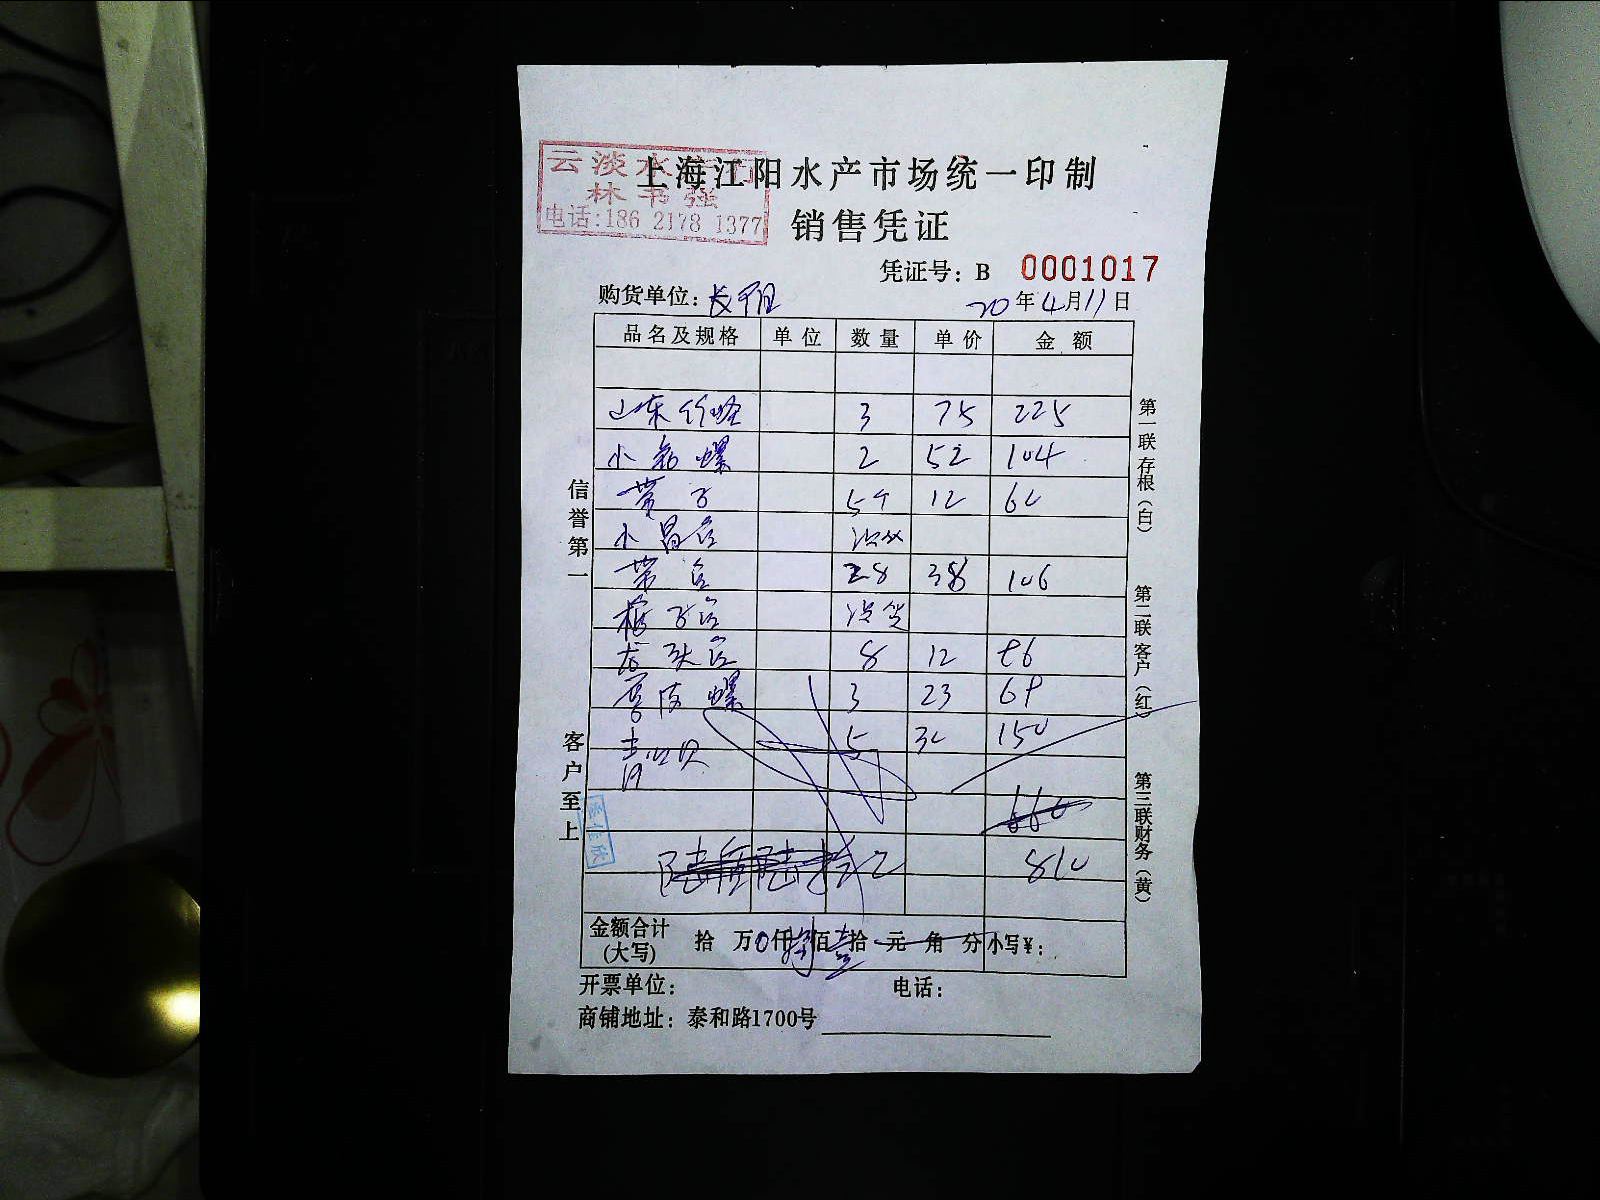 上海江阳水产市场统一印制
云淡水
林书强
电话:186 2178 1377
销售凭证
凭证号: B 0001017
购货单位:
20年4月11日
品名及规格 单位 数量 单价 金额
山东 3 75 225
小 螺 2 52 104
带子 5个 12 60
小昌
带 28 38 106
子
龙头 8 12
螺 3 23 69
青口贝 5 30 150
660
陆佰陆拾元 810
金额合计(大写) 拾 万0仟捌佰壹拾 元 角 分 小写¥:
开票单位: 电话:
商铺地址: 泰和路1700号
信誉第一
客户至上
第一联存根(白)
第二联客户(红)
第三联财务(黄)